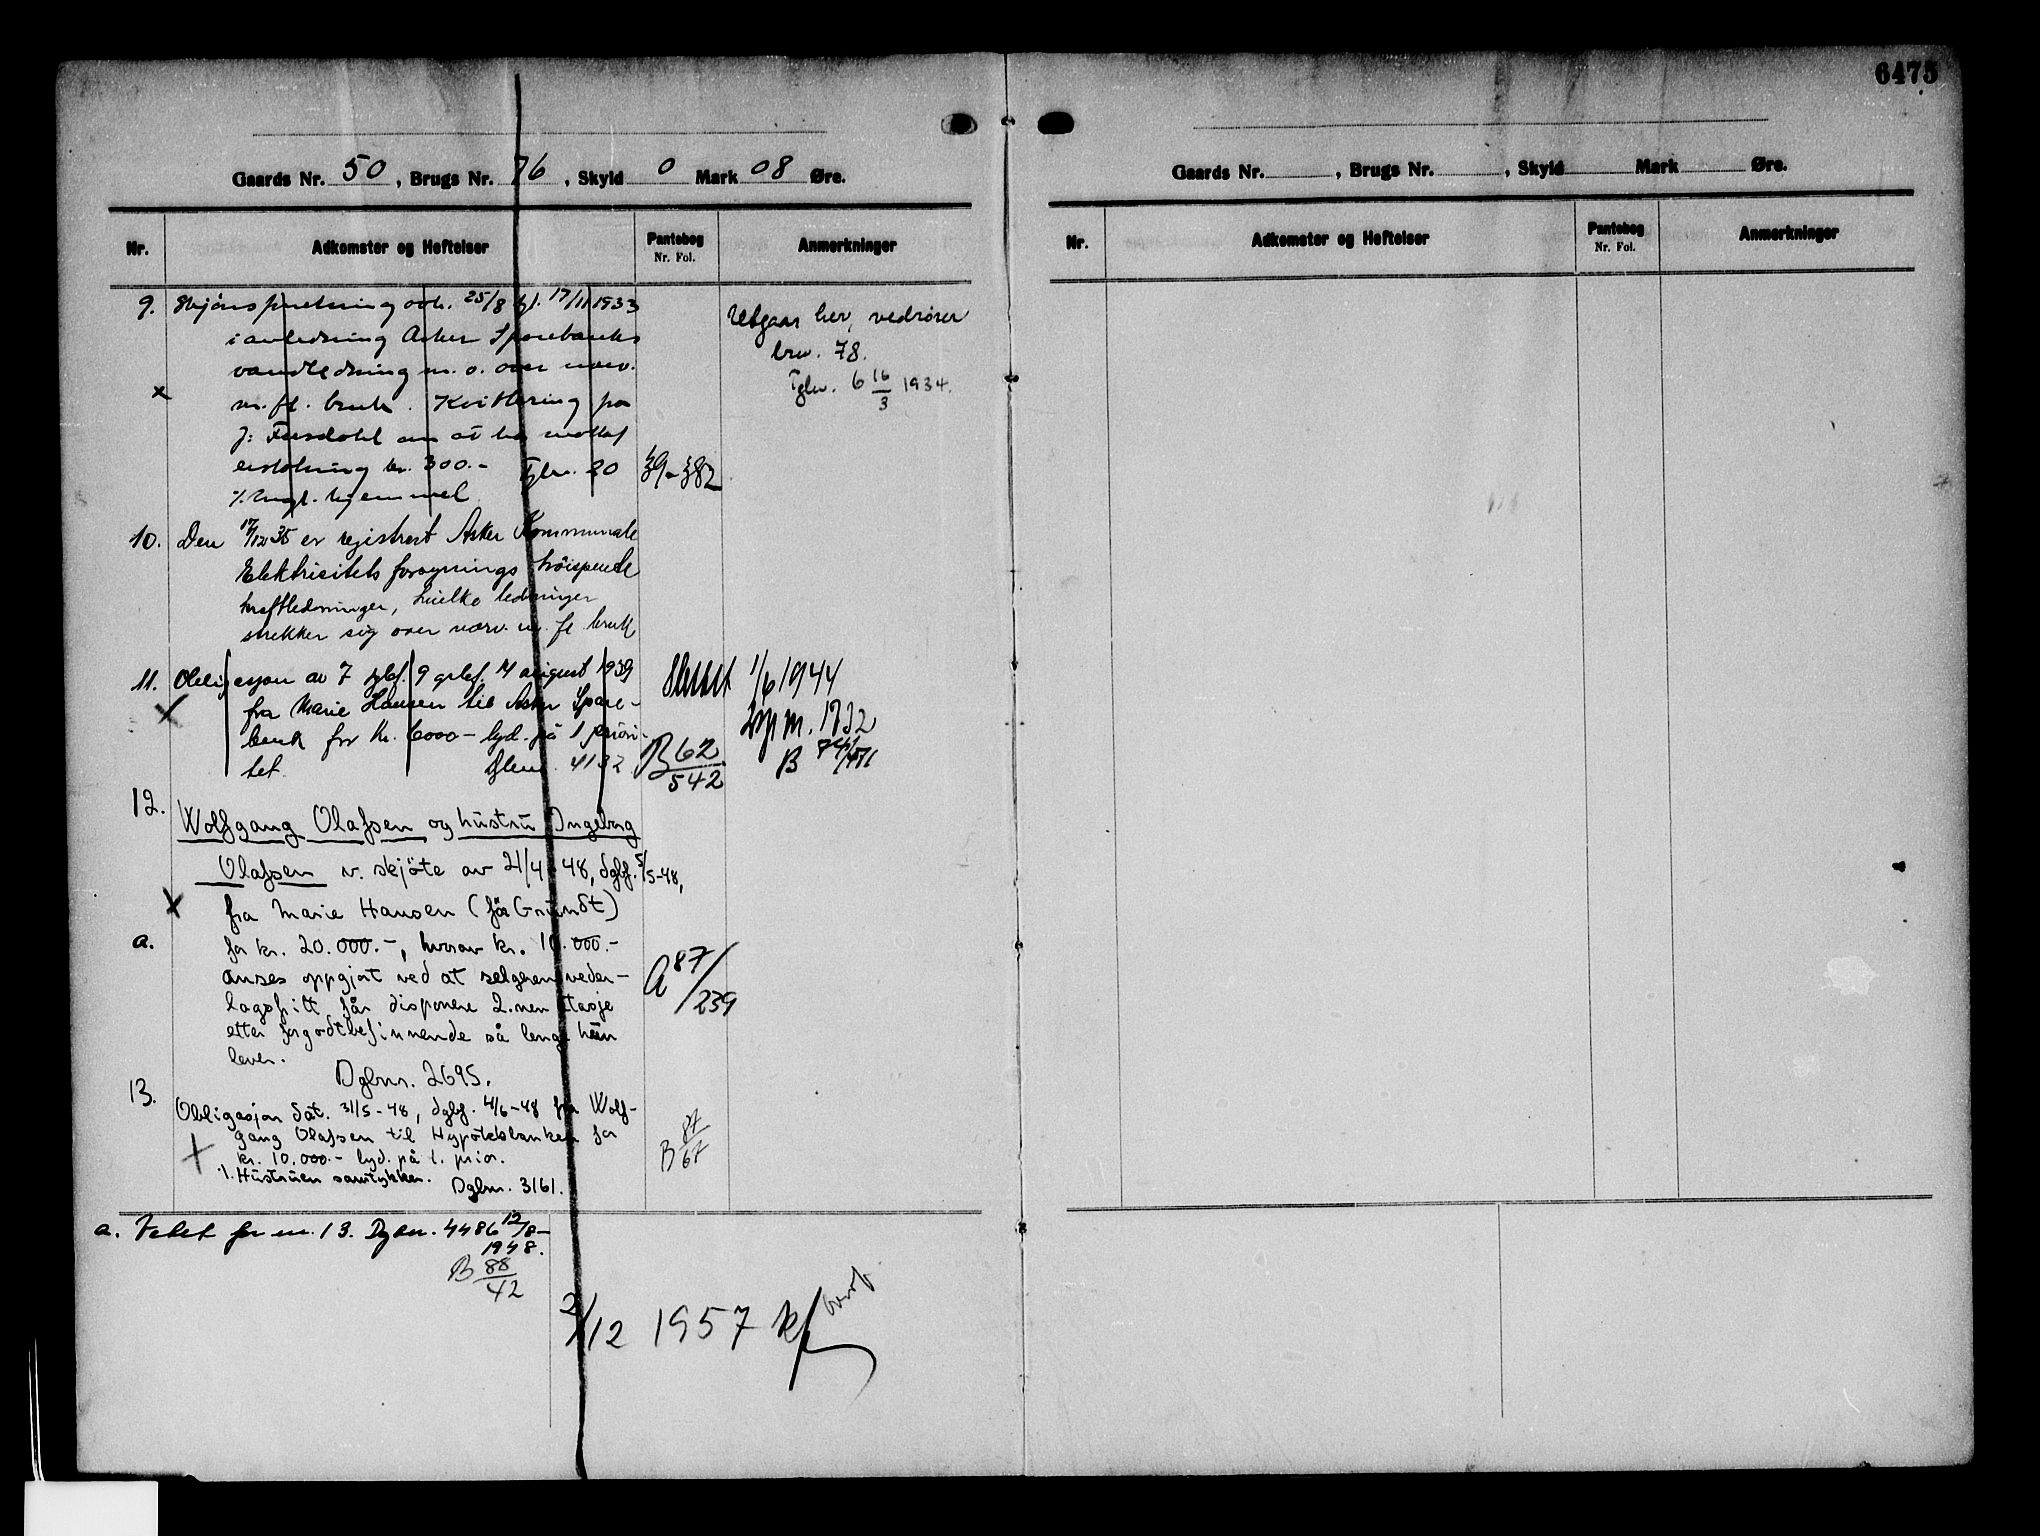 6475
Gaards Nr. 50, Brugs Nr. 76, Skyld 0 Mark 08 Øre.
Nr. Adkomster og Heftelser Pantebog Nr. Fol. Anmerkninger
9. Skjønsforretning avh. 25/8 tgl. 17/11 1933
i anledning Asker Sparebanks
vandledning m. o. over nærv.
m. fl. bruk. Kvittering fra
J. om at ha mottat
erstatning kr. 300.- Tglnr. 20
39-382
% Angl. hjemmel
Utgaar her, vedrører
brnr. 78.
Tglnr. 6 16/3 1934.
10. Den 17/12 35 er registrert Asker Kommunale
Elektricitetsforsynings høispente
kraftledninger, hvilke ledninger
strekker sig over nærv. m. fl. bruk
11. Obligasjon av 7 tgbf. 9 grbf. 14 august 1939
fra Marie Hansen til Asker Spare-
bank for kr. 6000- lyd. på 1 priori-
tet. Tglnr. 4132
B 62/542
Slettet 1/6 1944
1732
B
12. Wolfgang Olafsen og hustru Ingeborg
Olafsen v. skjöte av 21/4-48, dgbf. 5/5-48,
fra Marie Hansen (før Grundt)
a. for kr. 20.000.-, hvorav kr. 10.000.-
anses oppgjort ved at selgeren veder-
lagsfritt får disponere 2.nen etasje
etter forgodtbefinnende så lenge hun
lever.
Dgbnr. 2695.
A 87/239
13. Obligasjon dat. 31/5-48, dgbf. 4/6-48 fra Wolf-
gang Olafsen til Hypotekbanken for
kr. 10.000- lyd. på 1. prior.
./. Hustruen samtykker. Dgbnr. 3161.
B 87/67
a. Veket for nr. 13. Dgbnr. 4486 12/8-
1948.
B 88/42
2/12 1957
Gaards Nr. , Brugs Nr. , Skyld Mark Øre.
Nr. Adkomster og Heftelser Pantebog Nr. Fol. Anmerkninger